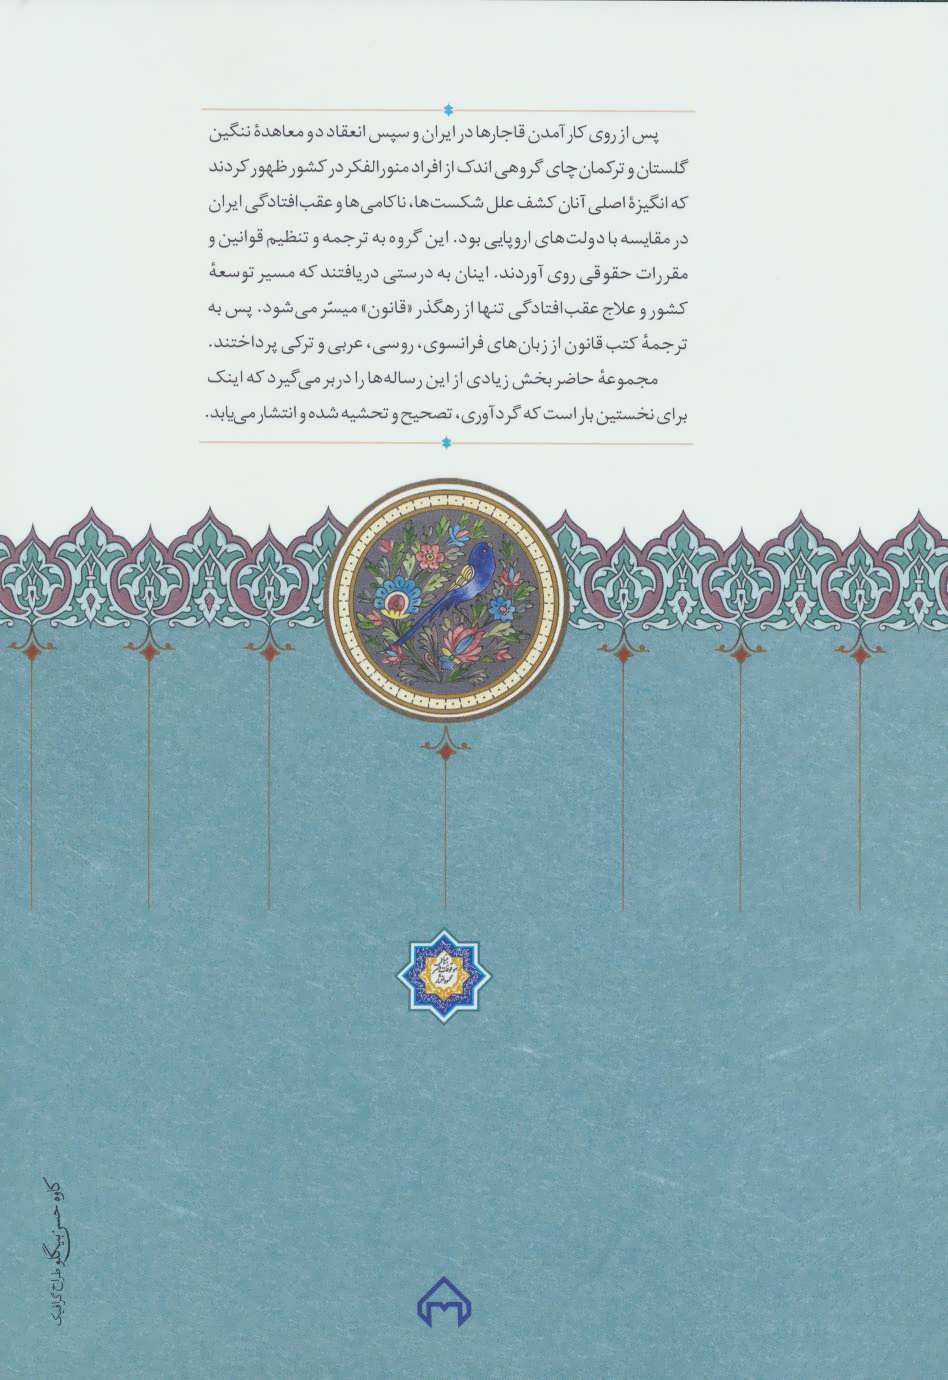 پس از روی کار آمدن قاجارها در ایران و سپس انعقاد دو معاهدهٔ ننگین
گلستان و ترکمان‌چای گروهی اندک از افراد منورالفکر در کشور ظهور کردند
که انگیزهٔ اصلی آنان کشف علل شکست‌ها، ناکامی‌ها و عقب‌افتادگی ایران
در مقایسه با دولت‌های اروپایی بود. این گروه به ترجمه و تنظیم قوانین و
مقررات حقوقی روی آوردند. اینان به درستی دریافتند که مسیر توسعهٔ
کشور و علاج عقب‌افتادگی تنها از رهگذر «قانون» میسّر می‌شود. پس به
ترجمهٔ کتب قانون از زبان‌های فرانسوی، روسی، عربی و ترکی پرداختند.
مجموعهٔ حاضر بخش زیادی از این رساله‌ها را دربر می‌گیرد که اینک
برای نخستین بار است که گردآوری، تصحیح و تحشیه شده و انتشار می‌یابد.
کاوه حسن بیگلو طراح گرافیک